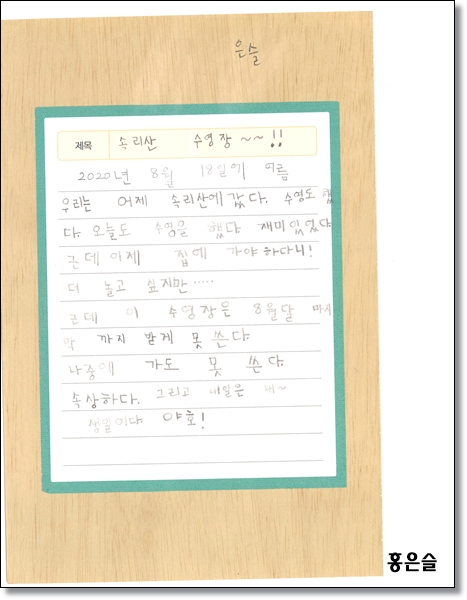 은슬
제목 속리산 수영장~~!!
2020년 8월 18일에 여름
우리는 어제 속리산에 갔다. 수영도 했
다. 오늘도 수영을 했다 재미있었다
근데 이제 집에 가야하다니!
더 놀고 싶지만.....
근데 이 수영장은 8월달 마지
막 까지 밖게 못 쓴다.
나중에 가도 못 쓴다.
속상하다. 그리고 내일은 내~
생일이다 야호!
홍은슬